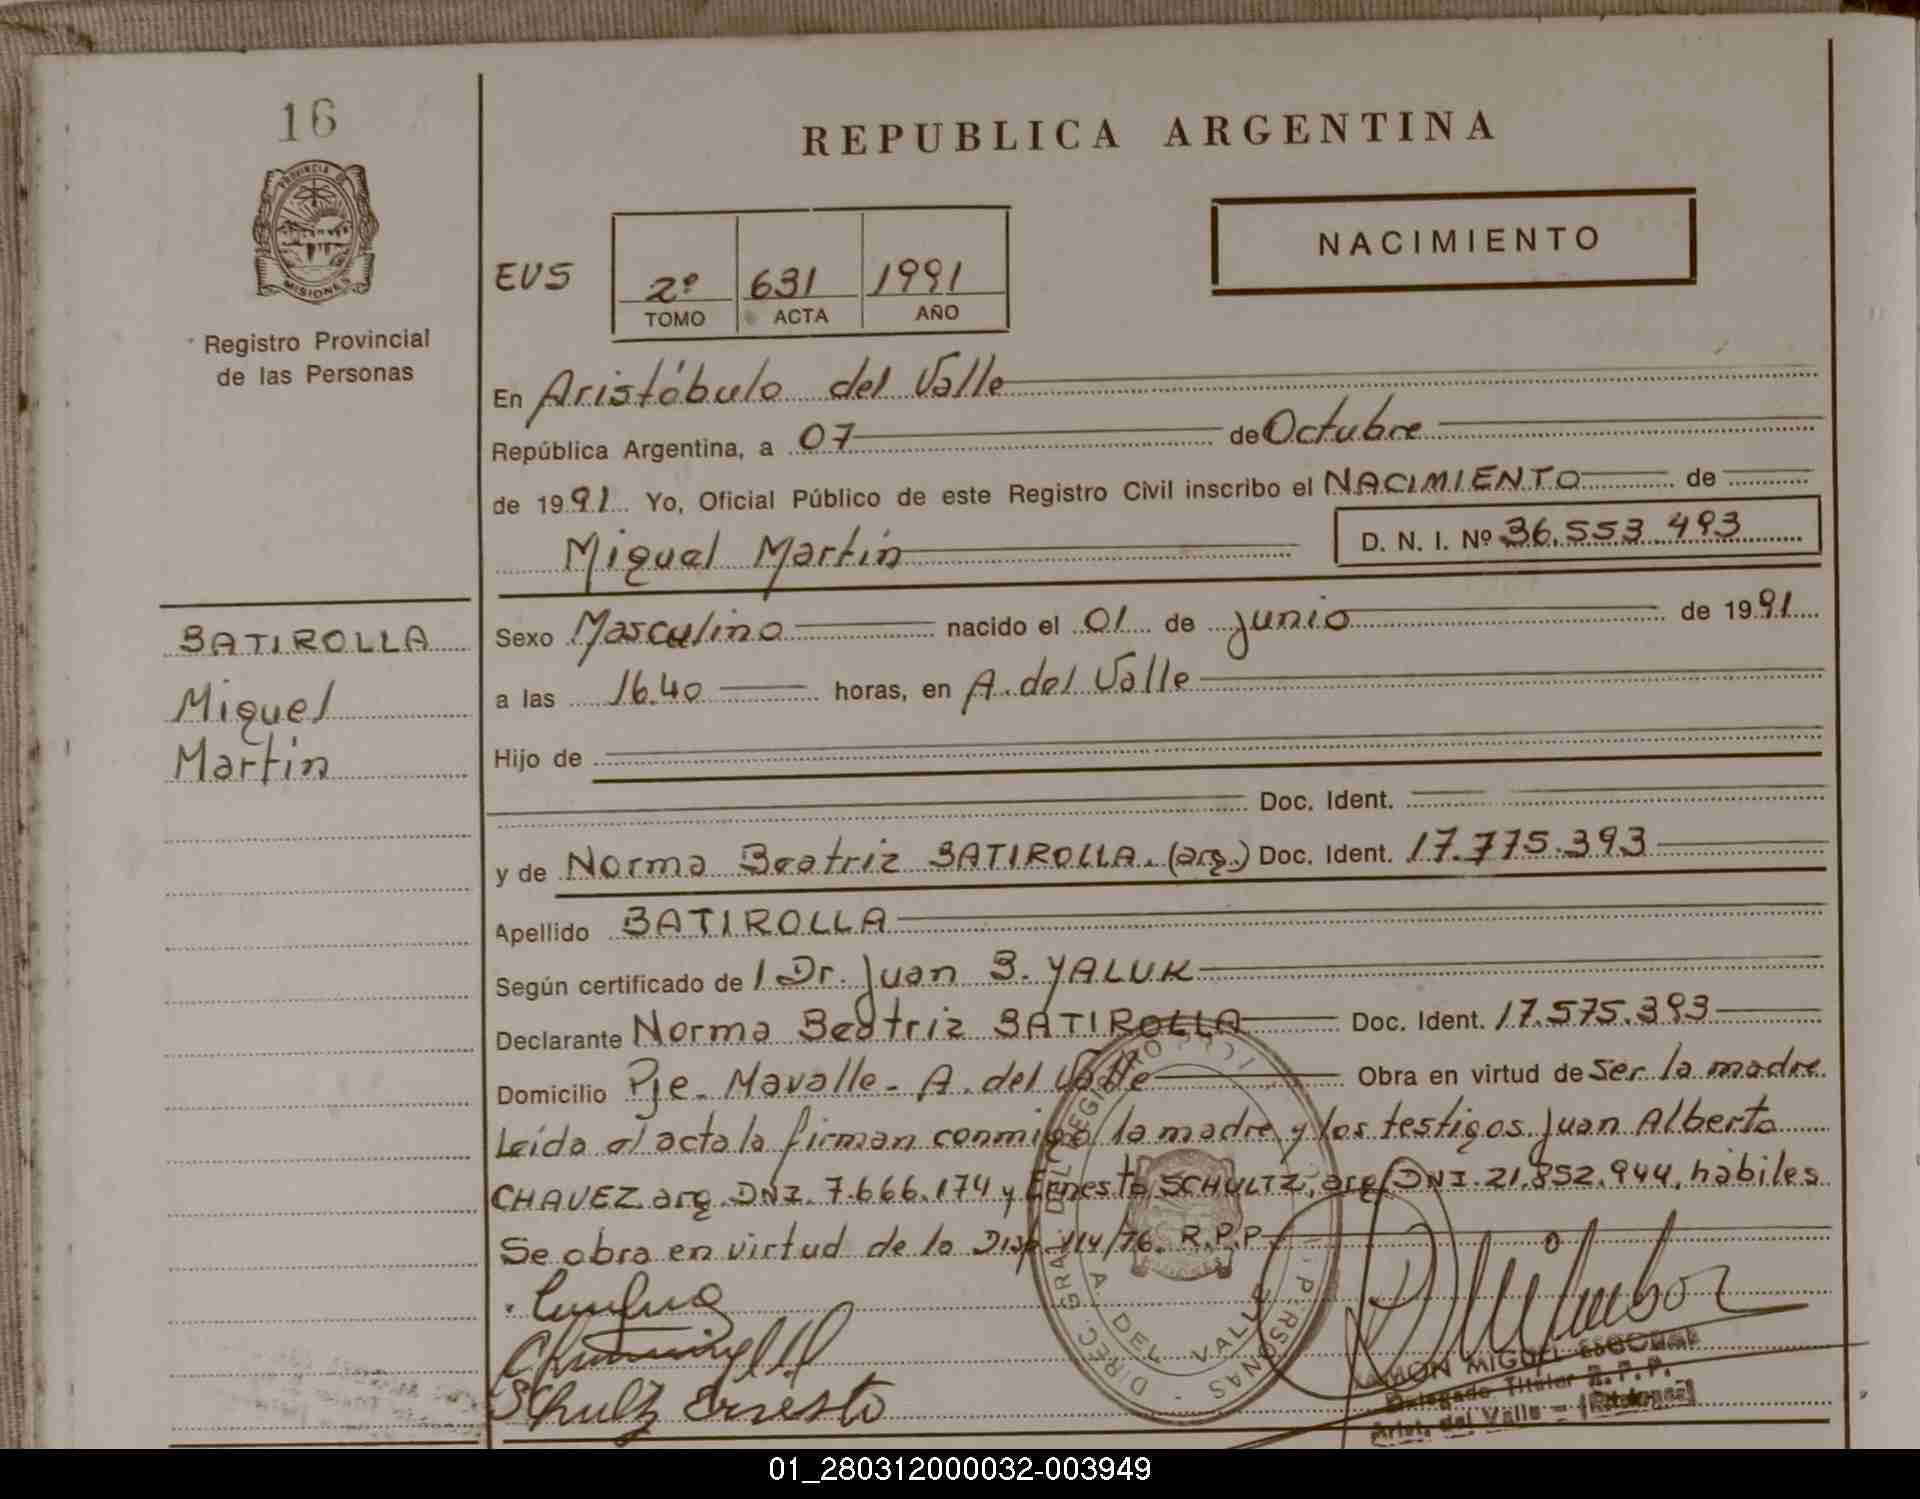 16
PROVINCIA DE
MISIONES
Registro Provincial
de las Personas
BATIROLLA
Miguel
Martin
REPUBLICA ARGENTINA
NACIMIENTO
EVS
2º 631 1991
TOMO ACTA AÑO
En Aristóbulo del Valle
República Argentina, a 07 de Octubre
de 1991 Yo, Oficial Público de este Registro Civil inscribo el NACIMIENTO de
Miguel Martín D. N. I. Nº 36.553.493
Sexo Masculino nacido el 01 de junio de 1991
a las 16.40 horas, en A. del Valle
Hijo de
Doc. Ident.
y de Norma Beatriz BATIROLLA. (arg.) Doc. Ident. 17.775.393
Apellido BATIROLLA
Según certificado de l Dr. Juan B. YALUK
Declarante Norma Beatriz BATIROLLA Doc. Ident. 17.575.393
Domicilio Pje. Mavalle - A. del Valle Obra en virtud de ser la madre
Leída el acta la firman conmigo la madre y los testigos Juan Alberto
CHAVEZ arg. DNI. 7.666.174 y Ernesto SCHULTZ, arg. DNI. 21.852.944, hábiles
Se obra en virtud de la Disp. 114/76. R.P.P
DIREC. GRAL. DEL REGISTRO PERSONAS
A. DEL VALLE
Schulz Ernesto
RAMON MIGUEL ESCOBAR
Delegado Titular R.P.P.
Arist. del Valle - (Misiones)
01_280312000032-003949